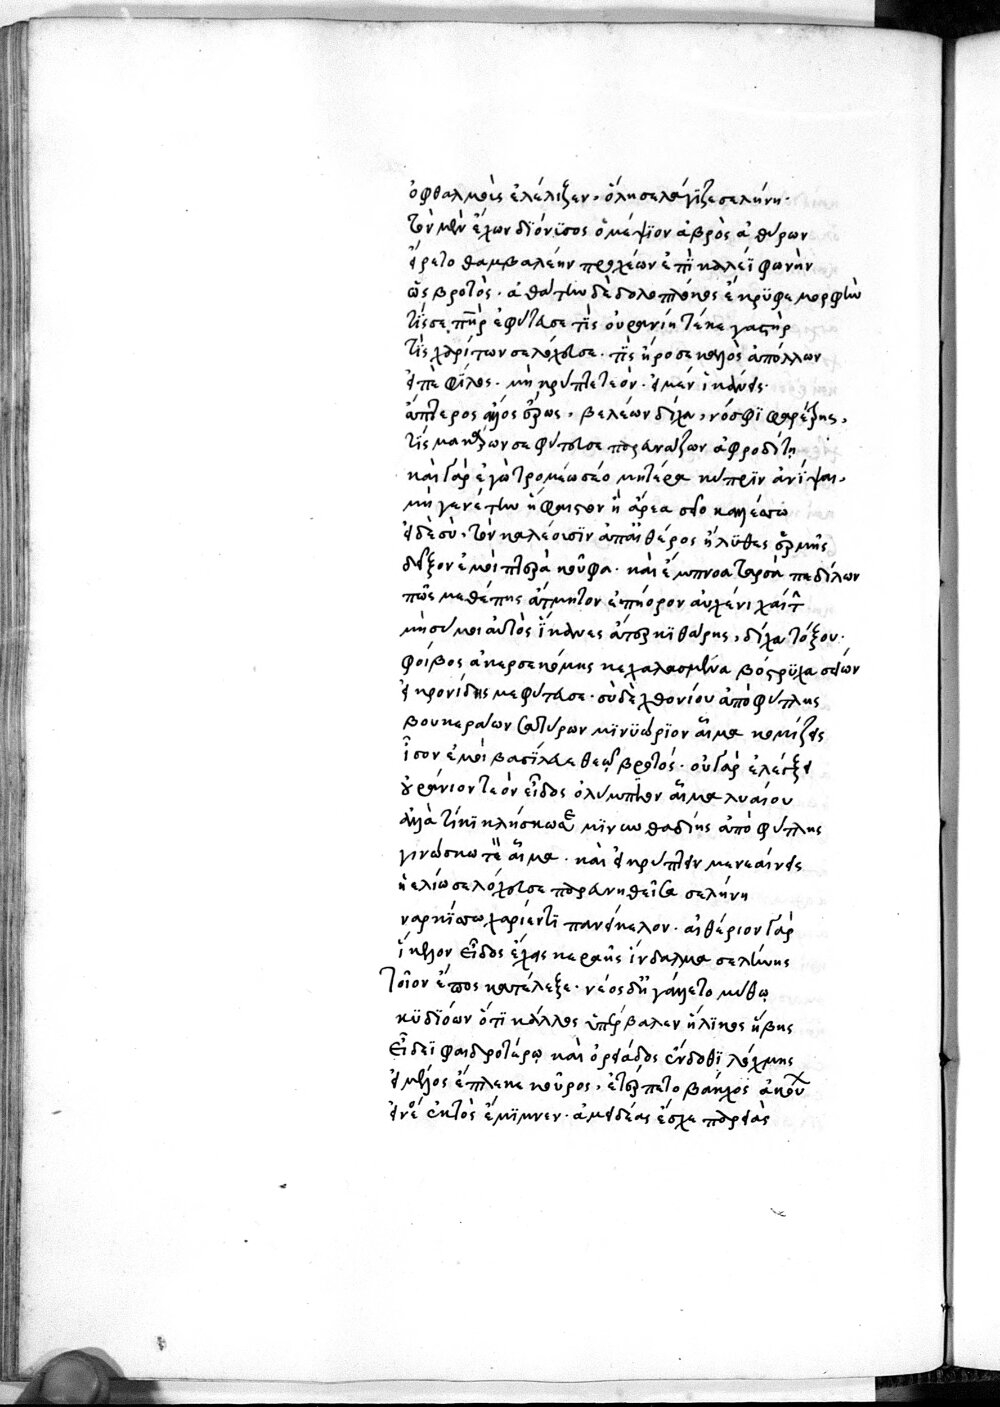 ὀφθαλμοὺς ἐλέλιξεν, ὅλη σελάγιζε σελήνη.
τὸν μὲν ἔχων διόνυσος ὁμέψιον ἁβρὸς ἀθύρων
εἴρετο θαμβαλέην προχέων ἐπὶ παιδὶ φωνὴν
ὡς βροτὸς. ἀθανάτην δὲ δολοπλόκος ἔκρυφε μορφὴν
τίς σε πατὴρ ἐφύτευσε τίς οὐρανίη τέκε γαστὴρ
τίς χαρίτων σε λόχευσε. τίς ἤροσε καλὸς ἀπόλλων
εἰπὲ φίλος. μὴ κρύπτε τεὸν γένος. εἰ μὲν ἱκάνεις
ἄπτερος ἄλλος ἔρως, βελέων δίχα, νόσφι φαρέτρης,
τίς μακάρων σε φύτευσε παρευνάζων ἀφροδίτῃ
καὶ γὰρ ἐγὼ τρομέω σέο μητέρα κύπριν ἐνίψαι,
μὴ γενέτην ἥφαιστον ἢ ἄρεα σεῖο καλέσσω
εἰ δὲ σὺ, τὸν καλέουσιν ἀπ' αἰθέρος ἤλυθες ἑρμῆς
δεῖξον ἐμοὶ πτερὰ κοῦφα. καὶ ἔμπνοα ταρσὰ πεδίλων
πῶς μεθέπεις ἄτμητον ἐπήορον αὐχένι χαίτην
μὴ σύ μοι αὐτὸς ἵκανες ἄτερ κιθάρης, δίχα τόξου.
φοῖβος ἀκερσεκόμης κεχαλασμένα βόστρυχα σείων
εἰ κρονίδης με φύτευσε. σὺ δὲ χθονίου ἀπὸ φύτλης
βουκεράων σατύρων μινυώριον αἷμα κομίζεις
ἶσον ἐμοὶ βασίλευε θεῷ βροτός. οὐ γὰρ ἐλέγξει
οὐράνιον τεὸν εἶδος ὀλύμπιον αἷμα λυαίου
ἀλλὰ τί κικλήσκω σε μινυνθαδίης ἀπὸ φύτλης
γινώσκω τεὸν αἷμα. καὶ εἰ κρύπτειν μενεαίνεις
ἠελίῳ σε λόχευσε παρευνηθεῖσα σελήνη
ναρκίσσῳ χαρίεντι πανείκελον. αἰθέριον γὰρ
ἴκελον εἶδος ἔχεις κεραῆς ἴνδαλμα σελήνης
τοῖον ἔπος κατέλεξε. νέος δ' ἐπεγάνυτο μύθῳ
κυδιόων ὅτι κάλλος ὑπέρβαλεν ἥλικος ἥβης
εἴδεϊ φαιδροτέρῳ καὶ ὀρειάδος ἔνδοθι λόχμης
εἰ μέλος ἔπλεκε κοῦρος, ἐτέρπετο βάκχος ἀκούων
εἰ νέος ἐκτὸς ἔμιμνεν. ἀμειδέας ἔσχε παρειὰς